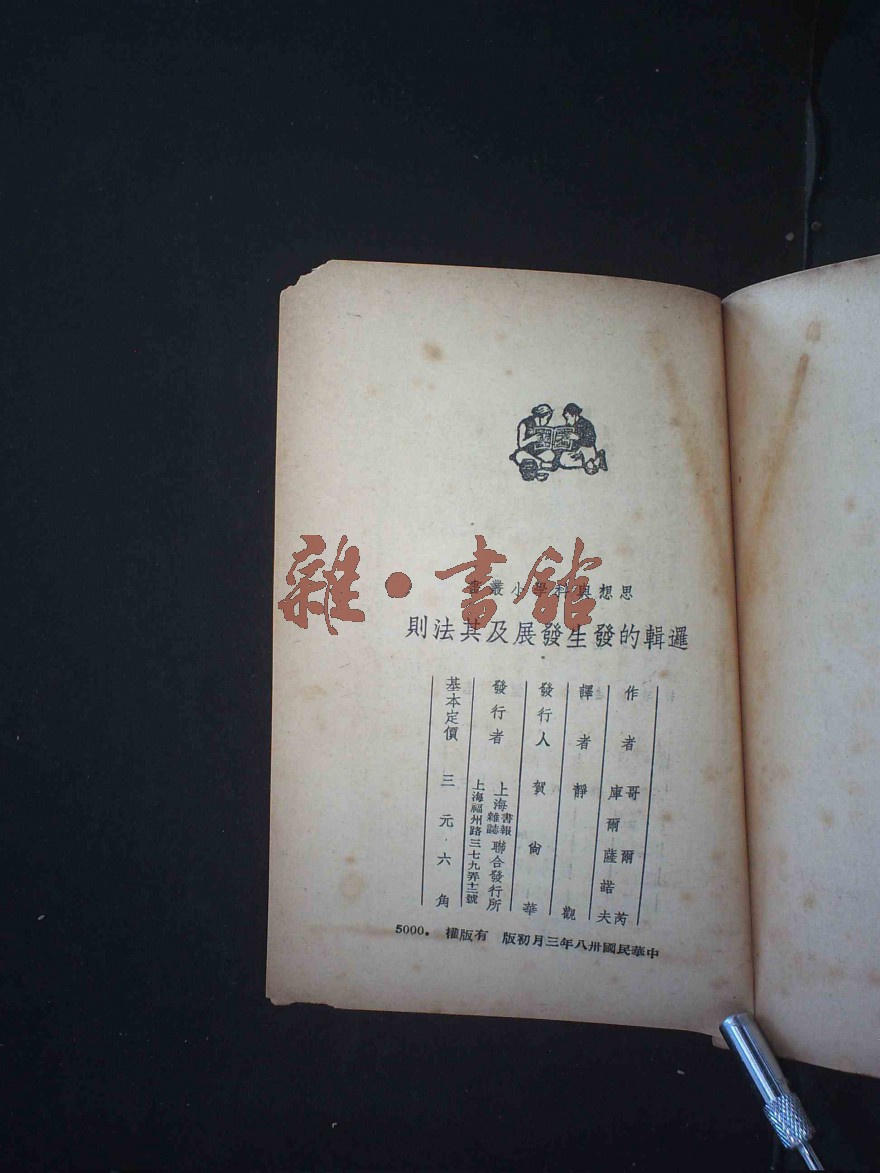 雜·書館
思想與科學小叢書
邏輯的發生發展及其法則
作者 哥爾芮 庫爾薩諾夫
譯者 靜觀
發行人 賀尙華
發行者 上海書報雜誌聯合發行所
上海福州路三七九弄十二號
基本定價 三元六角
中華民國卅八年三月初版 有版權 5000.